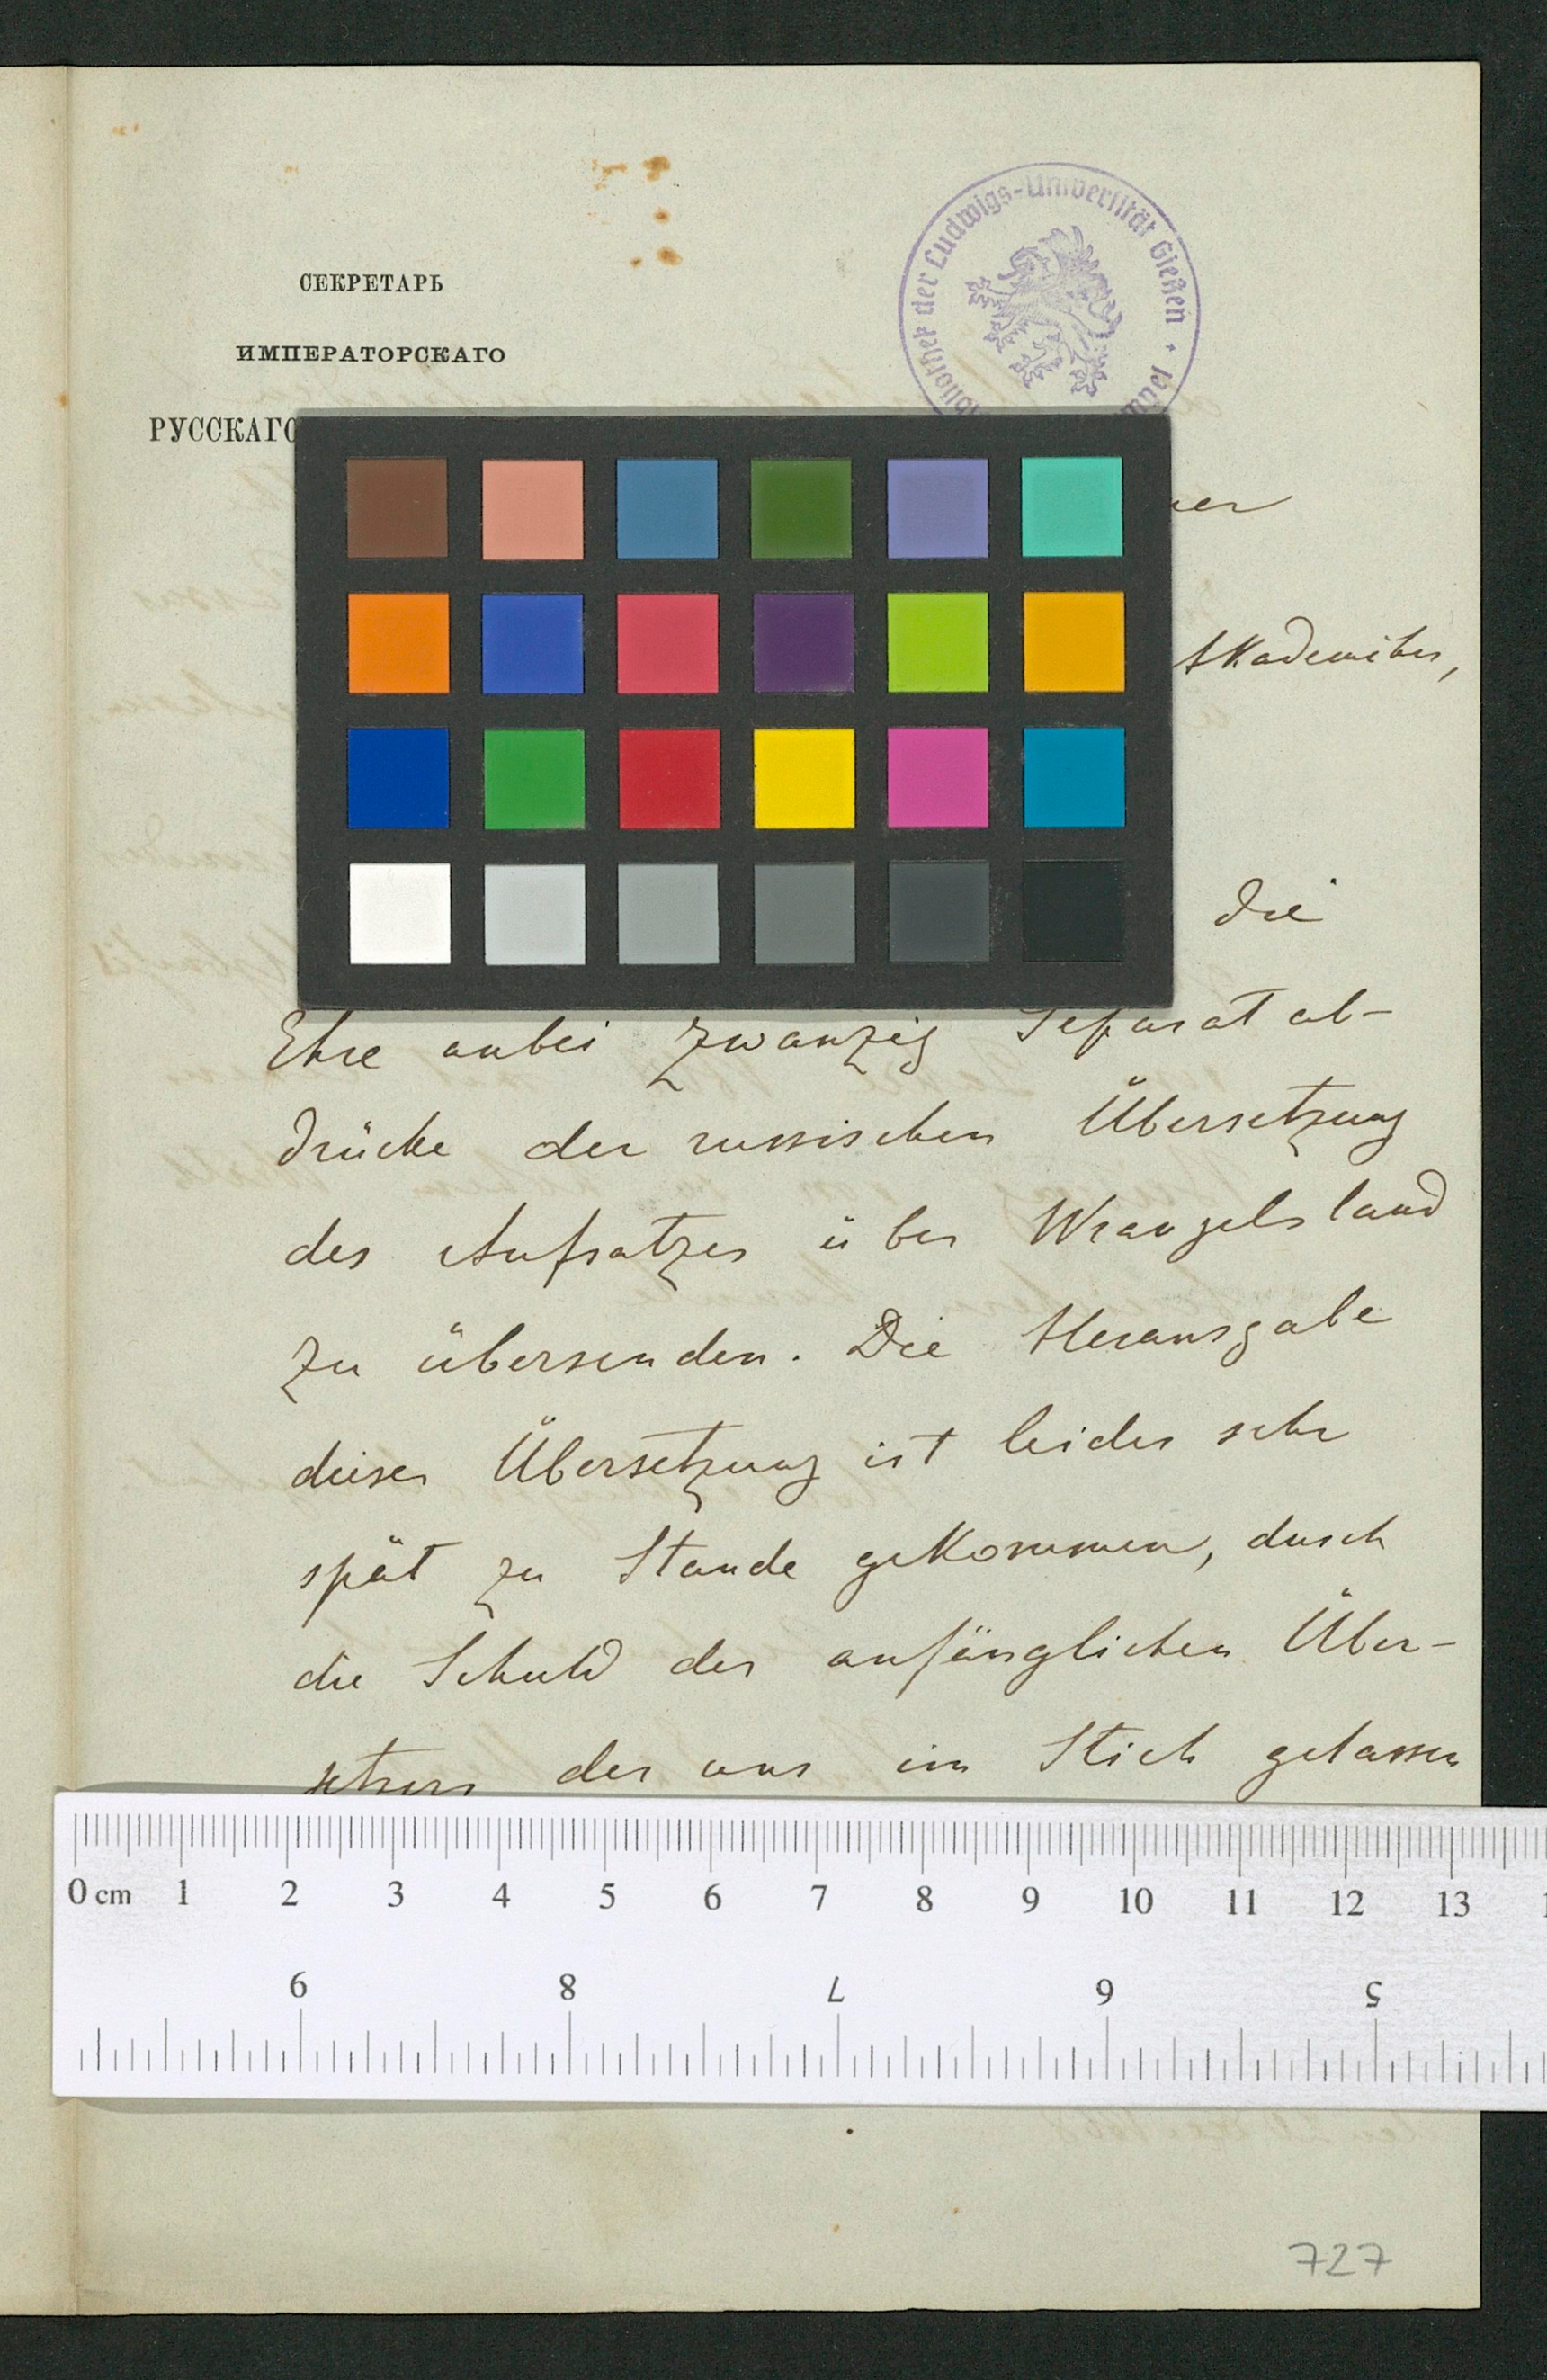 СЕКРЕТАРЬ
ИМПЕРАТОРСКАГО
РУССКАГО
der Ludwigs-Universität Gießen
Akademiker,
die
Ehre anbei zwanzig Separatab-
drücke der russischen Übersetzung
des Aufsatzes über Wrangelsland
zu übersenden. Die Herausgabe
dieser Übersetzung ist leider sehr
spät zu Stande gekommen, durch
die Schuld des anfänglichen Über-
setzers der uns im Stich gelassen
0 cm 1 2 3 4 5 6 7 8 9 10 11 12 13
9 8 7 6 5
727